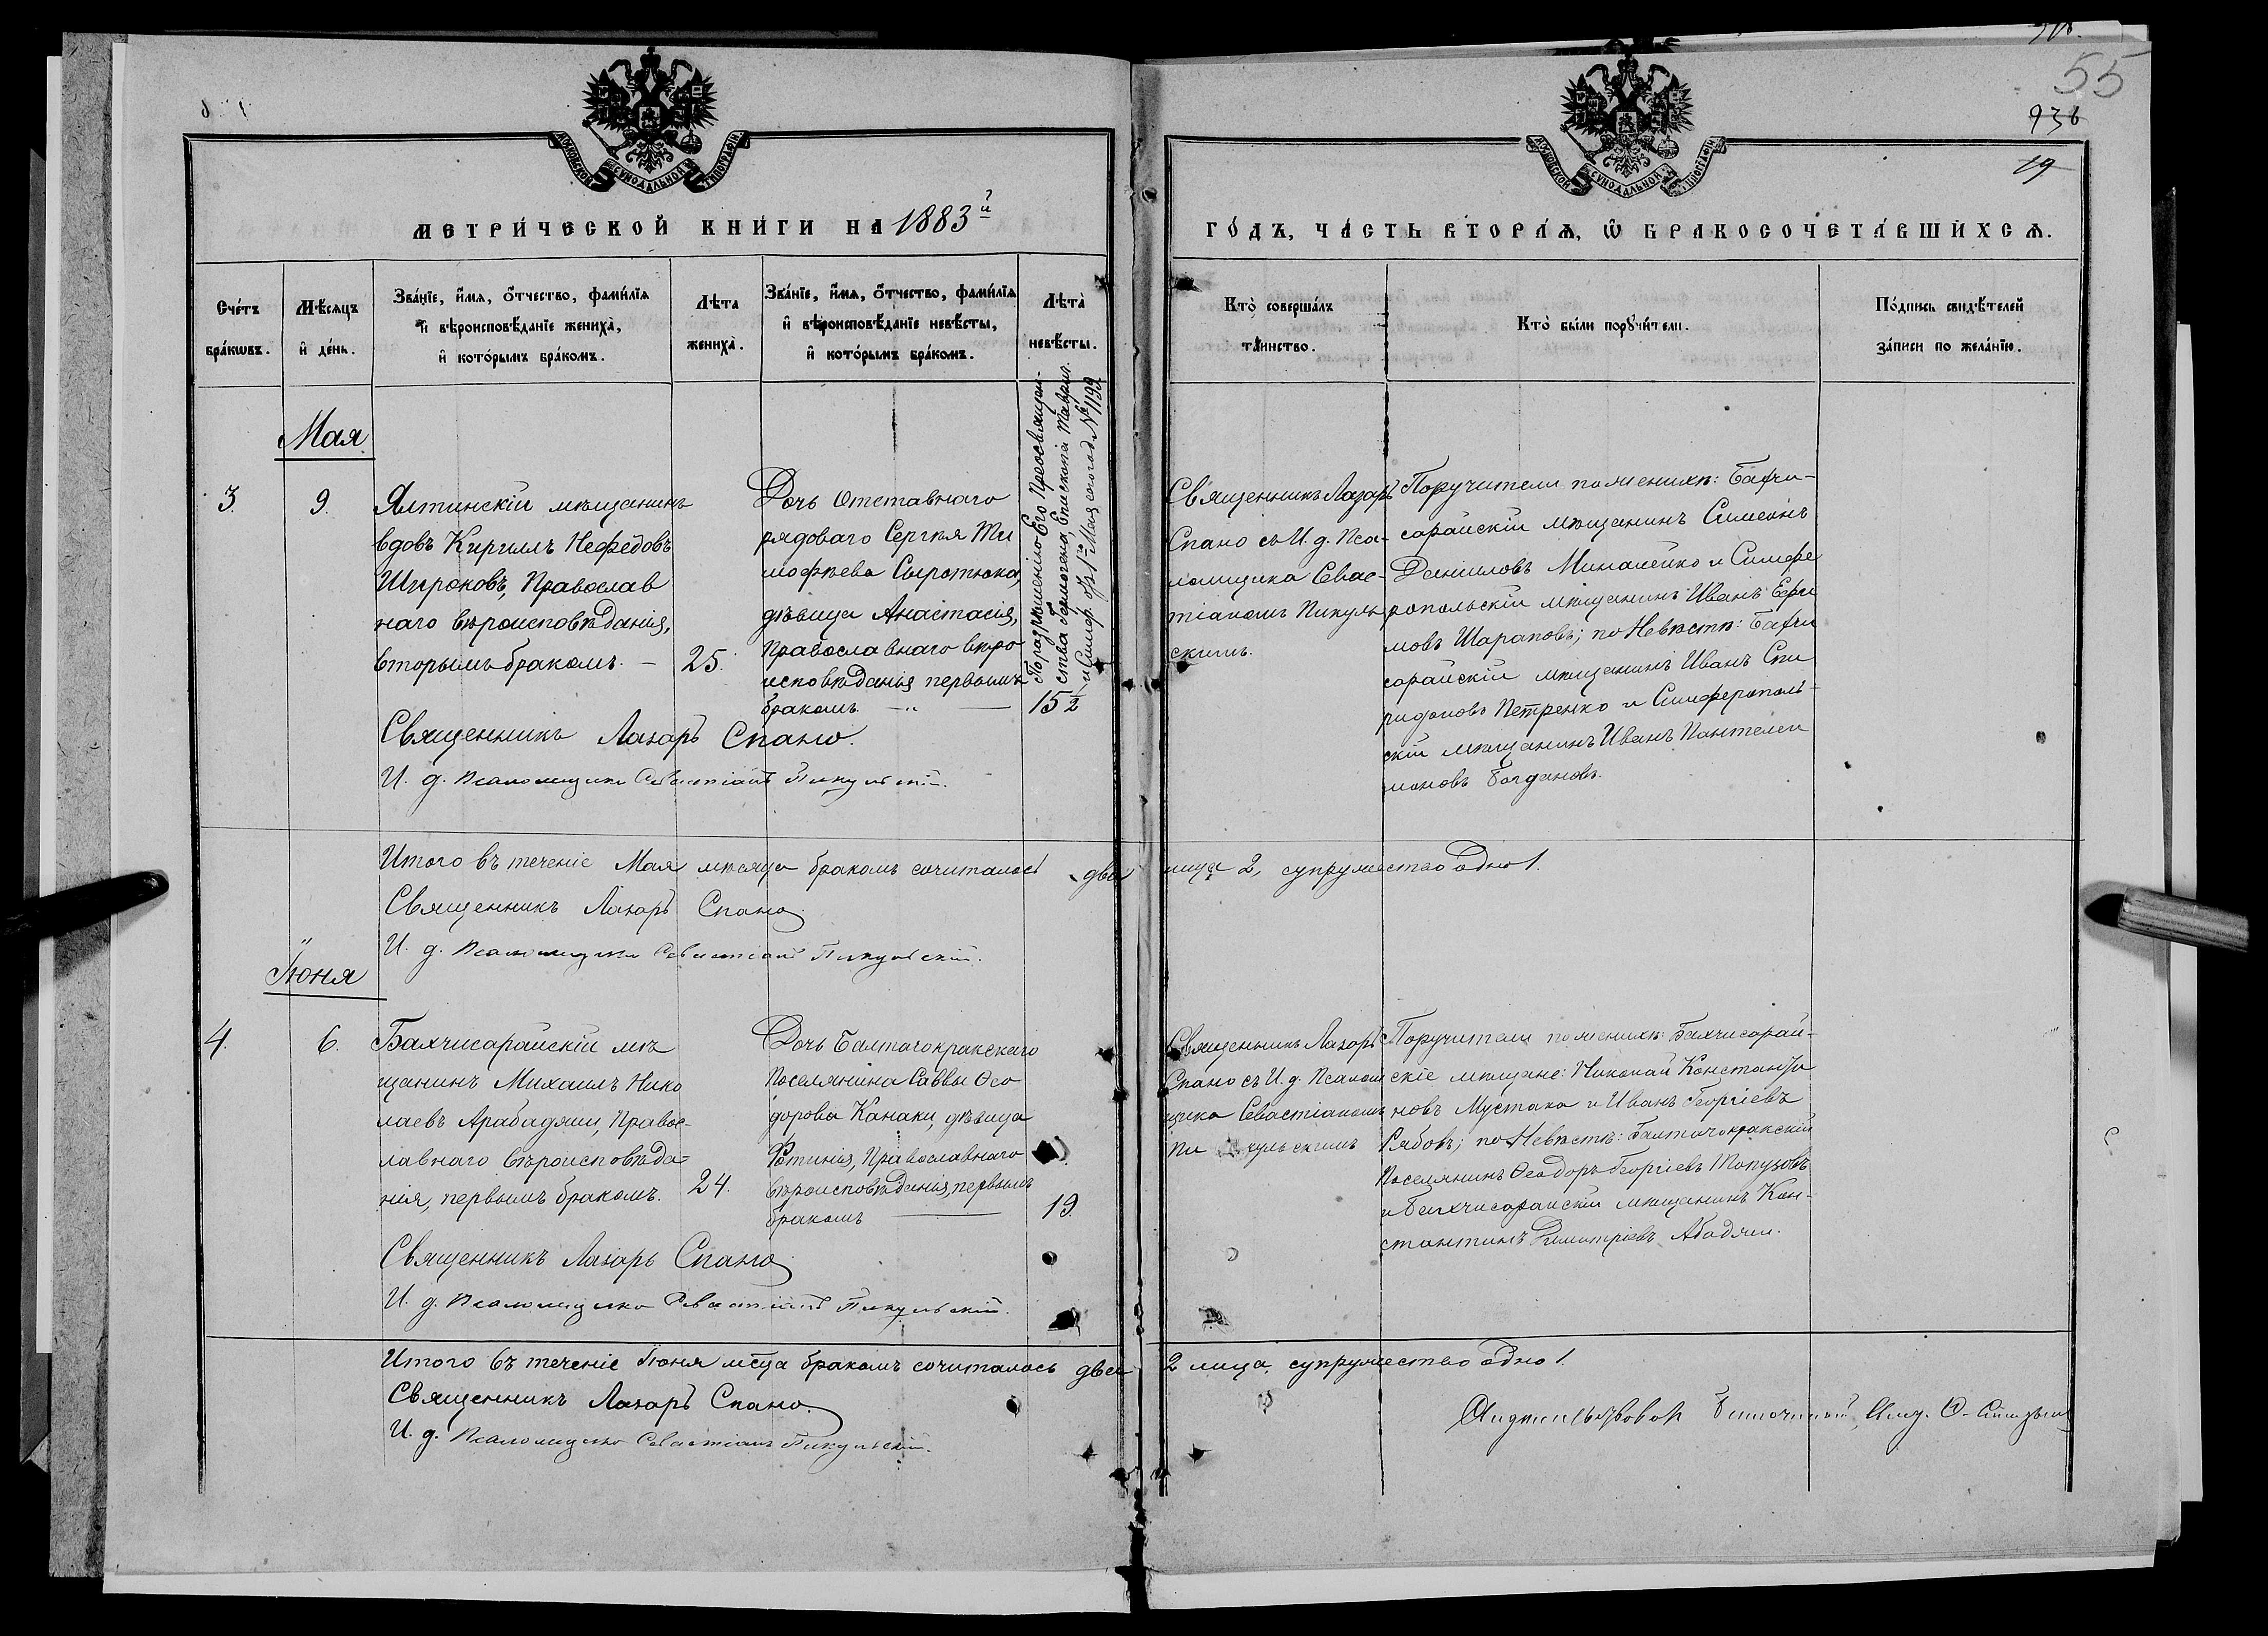 55
936
19
МОСКОВСКОЙ СУНОДАЛЬНОЙ ТИПОГРАФІИ
МОСКОВСКОЙ СУНОДАЛЬНОЙ ТИПОГРАФІИ
МЕТРИ́ЧЕСКОЙ КНИ́ГИ НА 1883й
ГО́ДЪ, ЧА́СТЬ ВТОРА́Я, Ѡ БРАКОСОЧЕТА́ВШИХСЯ.
Сче́тъ
бра́кωвъ.
Мѣ́сяцъ
и҆ де́нь.
Зва́нїе, и҆́мя, о҆́тчество, фами́лїя
и҆ вѣроисповѣ́данїе жениха̀,
и҆ кото́рымъ бра́комъ.
Лѣ́та
жениха̀.
Зва́нїе, и҆́мя, о҆́тчество, фами́лїя
и҆ вѣроисповѣ́данїе невѣ́сты,
и҆ кото́рымъ бра́комъ.
Лѣта̀
невѣ́сты.
Кто̀ соверша́лъ
та́инство.
Кто̀ бы́ли порꙋчи́тели.
По́дпись свидѣ́телей
за́писи по жела́нїю.
Мая
3.
9.
Ялтинскій мѣщанинъ
вдовъ Кириллъ Нефедовъ
Широковъ, Православ
наго вѣроисповѣданія,
вторымъ бракомъ. —
25.
Дочь отставнаго
рядоваго Сергѣя Ти
мофѣева Сыротюка,
дѣвица Анастасія,
Православнаго вѣро
исповѣданія первымъ
бракомъ. — „ —
По разрѣшенію Его Преосвящен-
ства Гермогена, Епископа Таврич.
и Симфер. отъ 1го Мая сего год. № 1199
15 1/2
Священникъ Лазарь
Спано съ И. д. Пса-
ломщика Севас-
тіаномъ Пикуль
скимъ.
Поручители по женихѣ: Бахчи-
сарайскій мѣщанинъ Симеонъ
Даниловъ Миналейко и Симфе
ропольскій мѣщанинъ Иванъ Ефи
мовъ Шараповъ; по Невѣстѣ: Бахчи
сарайскій мѣщанинъ Иванъ Спи
ридоновъ Петренко и Симферополь-
скій мѣщанинъ Иванъ Пантелеи
моновъ Богдановъ.
Священникъ Лазарь Спано.
И. д. Псаломщика Севастіанъ Пикульскій.
Итого въ теченіе Мая мѣсяца бракомъ сочиталось два лица 2, супружество одно 1.
Священникъ Лазарь Спано
И. д. Псаломщика Севастіанъ Пикульскій.
Іюня
4.
6.
Бахчисарайскій мѣ
щанинъ Михаилъ Нико
лаевъ Арабаджи, Правос-
лавнаго вѣроисповѣда-
нія, первымъ бракомъ.
24.
Дочь Балтачокракскаго
Поселянина Саввы Ѳео
дорова Канаки, дѣвица
Фотинія, Православнаго
вѣроисповѣданія, первымъ
бракомъ —
19.
Священникъ Лазарь
Спано съ И. д. Псалом
щика Севастіаномъ
Пи кульскимъ
Поручители по женихѣ: Бахчисарай-
скіе мѣщане: Николай Константи
новъ Мустака и Иванъ Георгіевъ
Рябовъ; по Невѣстѣ: Балтачокракскій
Поселянинъ Ѳеодоръ Георгіевъ Топузовъ
и Бахчисарайскій мѣщанинъ Кон-
стантинъ Димитріевъ Абаджи.
Священникъ Лазарь Спано
И. д. Псаломщика Севастіанъ Пикульскій.
Итого въ теченіе Іюня мѣсца бракомъ сочиталось два 2 лица, супружество одно 1.
Священникъ Лазарь Спано.
И. д. Псаломщика Севастіанъ Пикульскій.